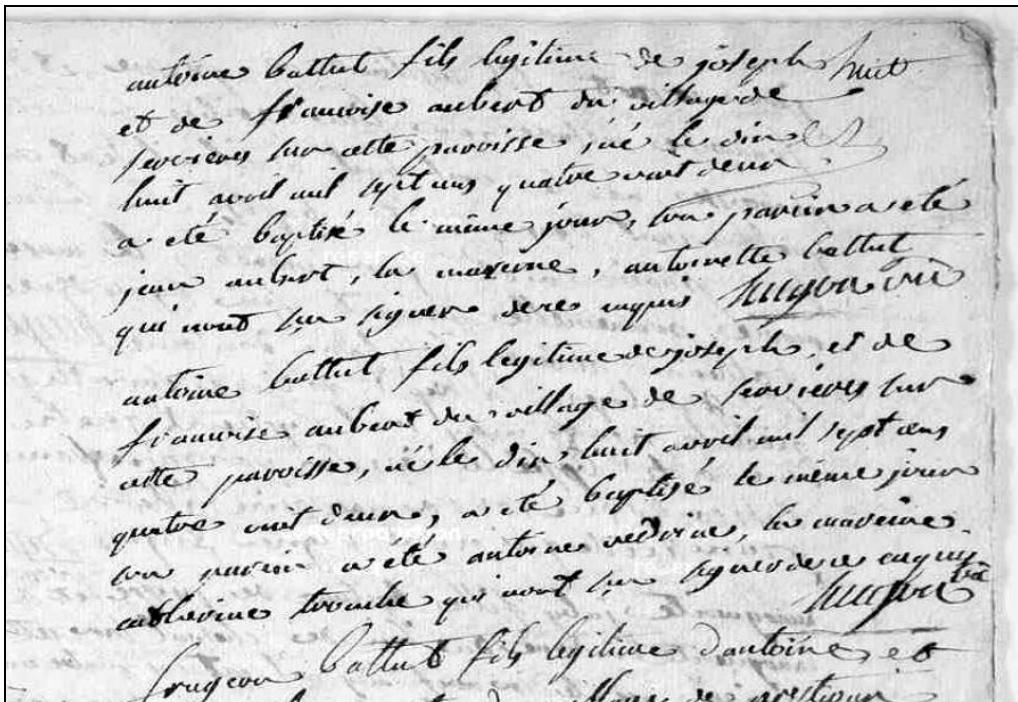 antoine battut fils legitime de joseph huit
et de francoise aubert du village de
servieres sur cette paroisse, né le dix
huit avril mil sept cens quatre vint deux
a eté baptisé le même jour, son parein a eté
jean aubert, la mareine, antoinette battut
qui n'ont su signer de ce requis
antoine battut fils legitime de joseph, et de
francoise aubert du village de servieres sur
cette paroisse, né le dix huit avril mil sept cens
quatre vint deux, a eté baptisé le même jour
son parein a été antoine vedrine, la mareine
catherine qui n'ont su signer de ce enquis
battut fils legitime d'antoine et
village de